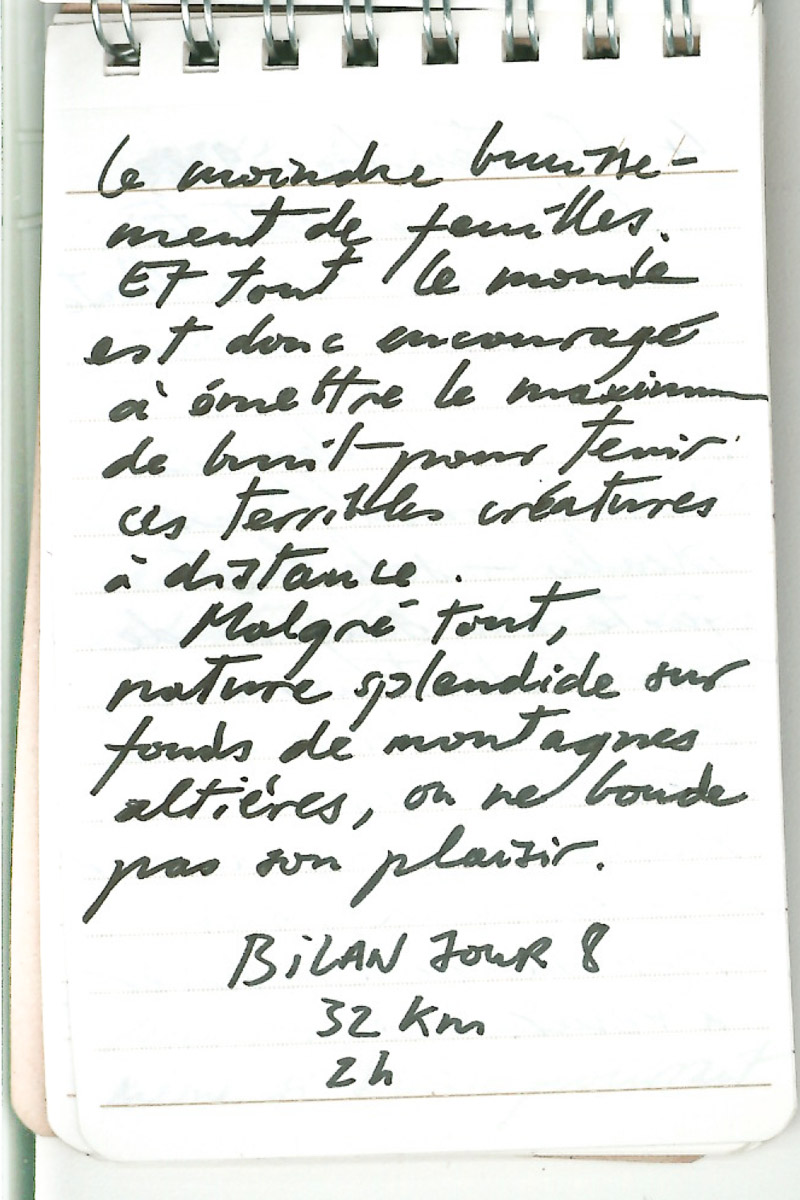 le moindre bruisse-
ment de feuilles.
Et tout le monde
est donc encouragé
à émettre le maximum
de bruit pour tenir
ces terribles créatures
à distance.
Malgré tout,
nature splendide sur
fonds de montagnes
altières, on ne boude
pas son plaisir.
BiLAN JOUR 8
32 Km
2h